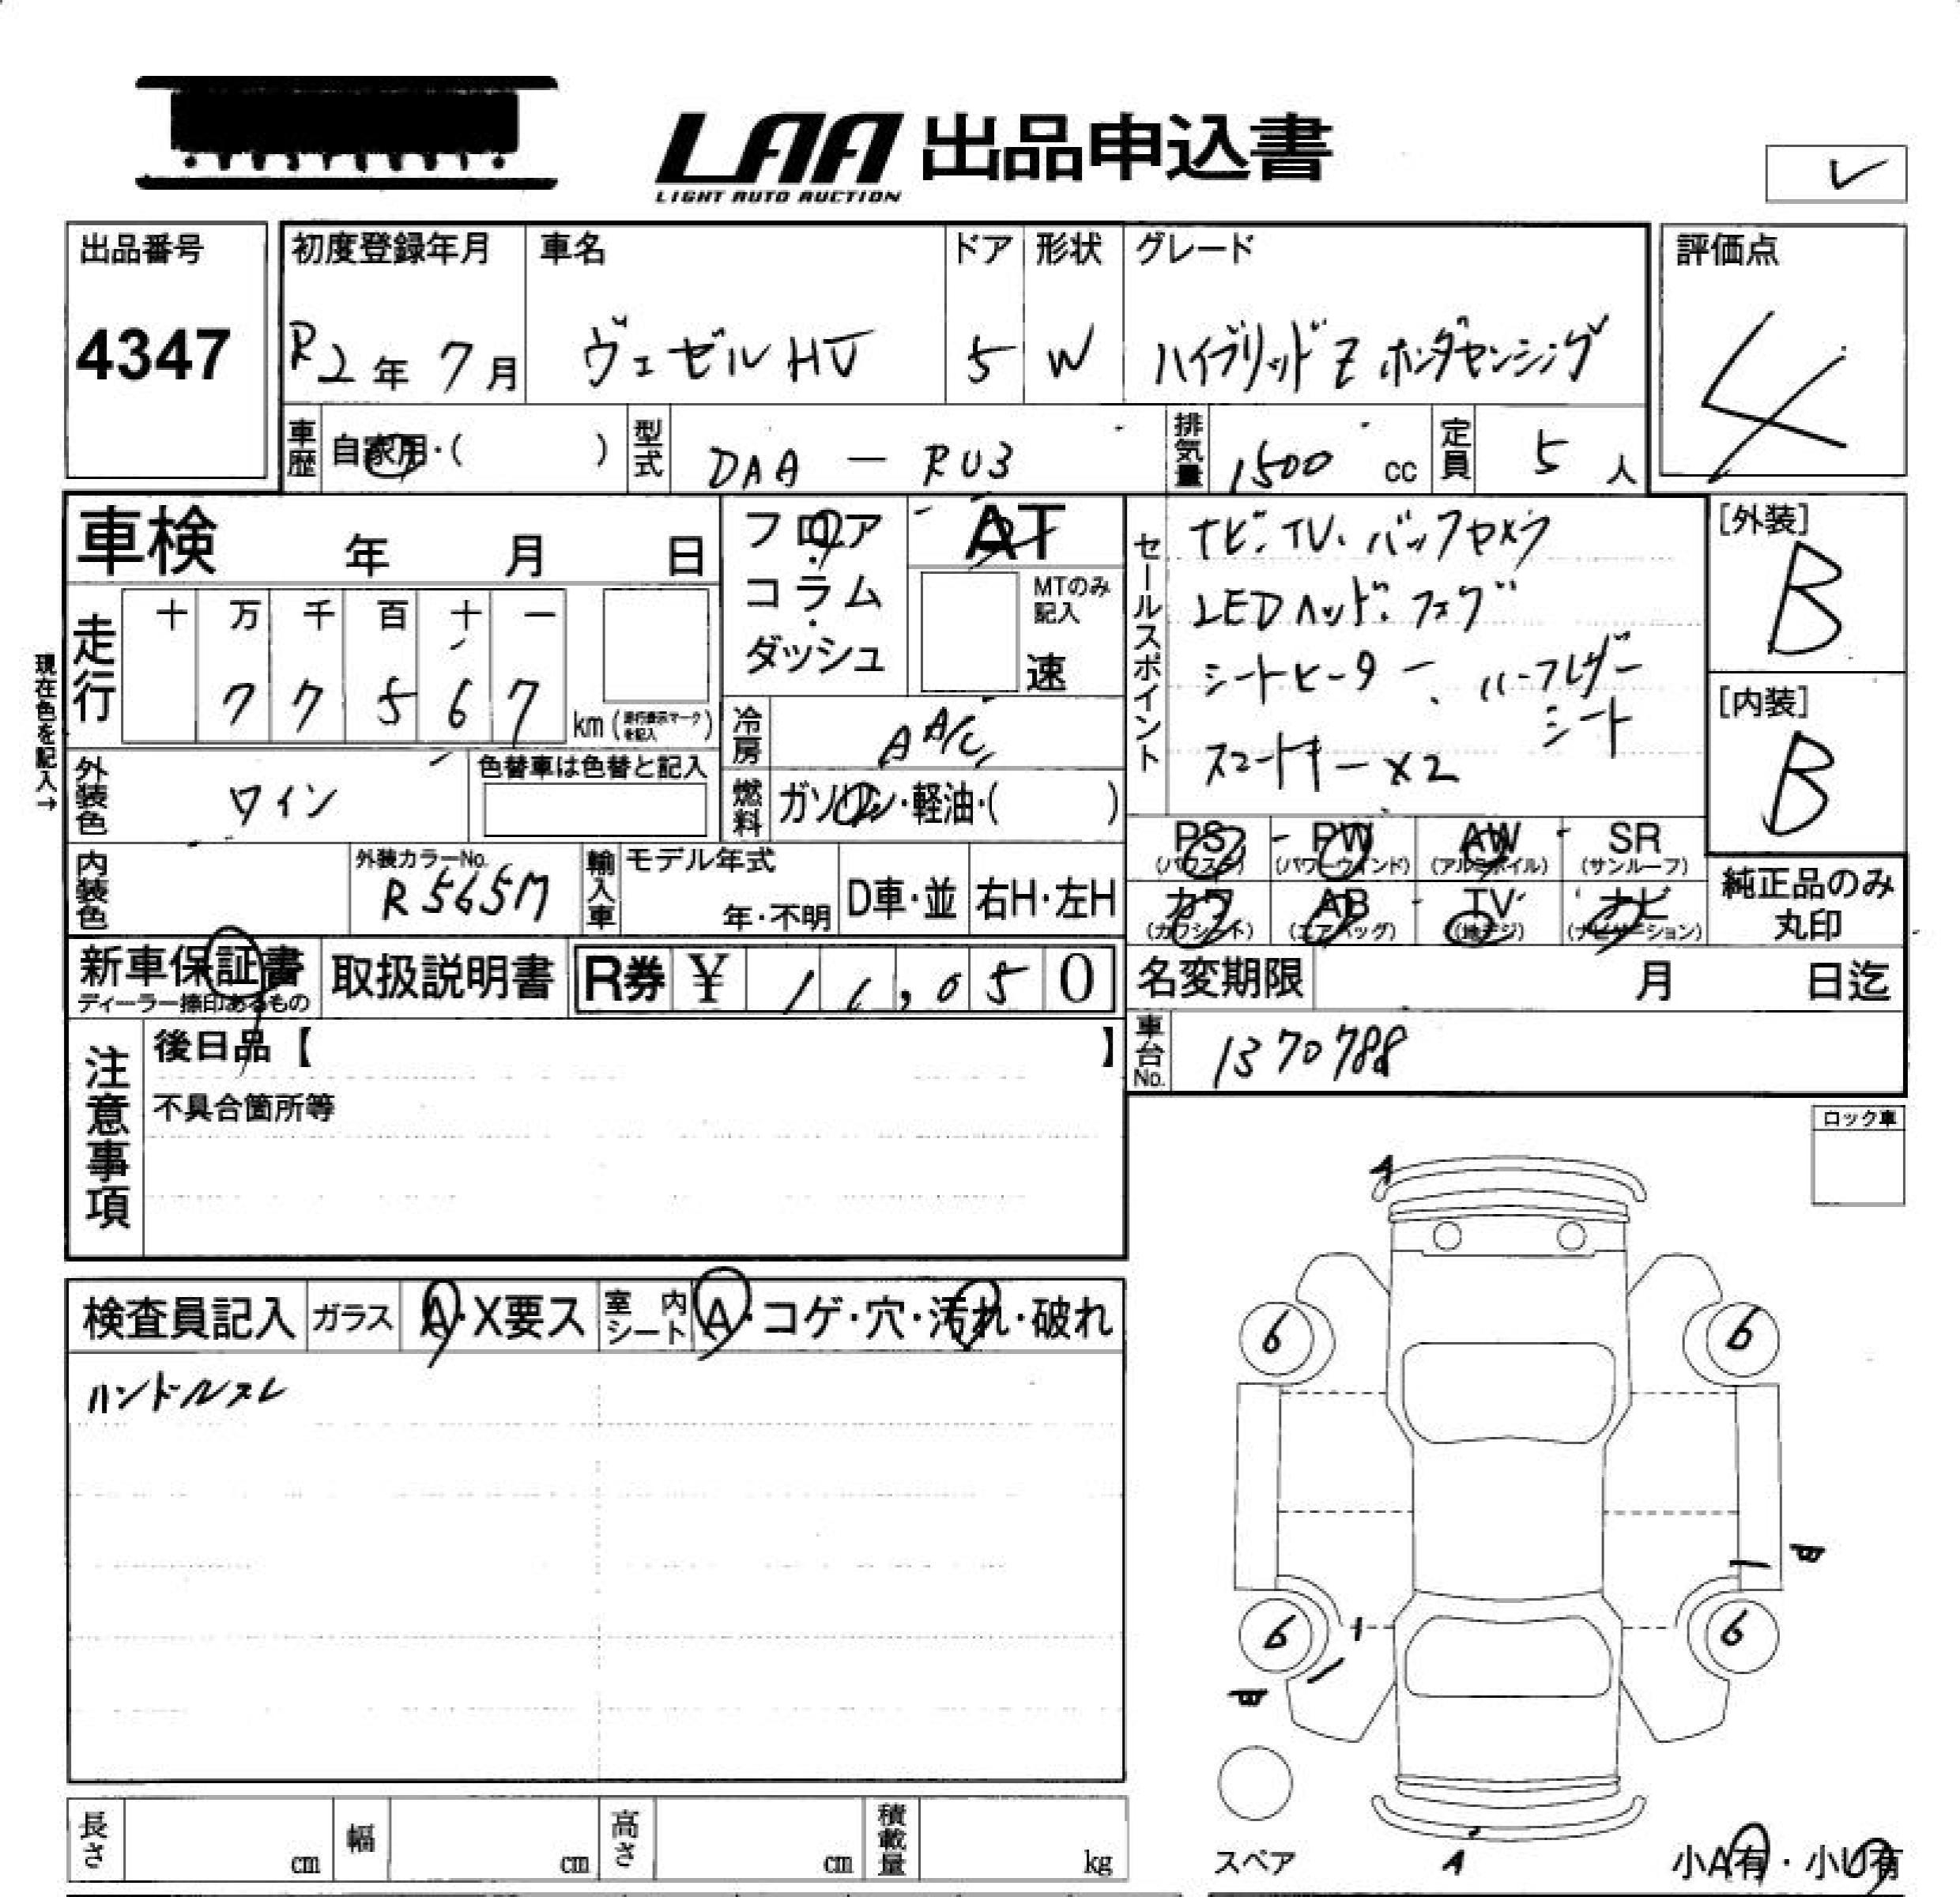 LAA 出品申込書
LIGHT AUTO AUCTION
レ
出品番号
4347
初度登録年月
R2年 7月
車名
ヴェゼル HV
ドア
5
形状
W
グレード
ハイブリッド Z ホンダセンシング
評価点
4
車歴 自家用・( )
型式 DAA - RU3
排気量 1500 cc
定員 5 人
車検 年 月 日
フロア・コラム・ダッシュ
AT
MTのみ記入
速
セールスポイント
ナビ・TV・バックカメラ
LEDヘッド・フォグ
シートヒーター、ハーフレザー
シート
スマートキー×2
[外装]
B
[内装]
B
現在色を記入→
走行
十 万 千 百 十 一
7 7 5 6 7 km (走行表示マークを記入)
冷房 AA/C
燃料 ガソリン・軽油・( )
外装色 ワイン
色替車は色替と記入
内装色
外装カラーNo.
R565M
輸入車
モデル年式
年・不明
D車・並
右H・左H
PS (パワステ)
PW (パワーウィンド)
AW (アルミホイル)
SR (サンルーフ)
カワ (カワシート)
AB (エアバッグ)
TV (地デジ)
ナビ (ナビゲーション)
純正品のみ
丸印
新車保証書
ディーラー捺印あるもの
取扱説明書
R券 ¥
,050
名変期限 月 日迄
車台No. 1370788
注意事項
後日品【 】
不具合箇所等
ロック車
検査員記入
ガラス A・X要ス
室内シート A・コゲ・穴・汚れ・破れ
ハンドルスレ
A
6
6
6
6
A
スペア
小A有・小U有
長さ cm
幅 cm
高さ cm
積載量 kg